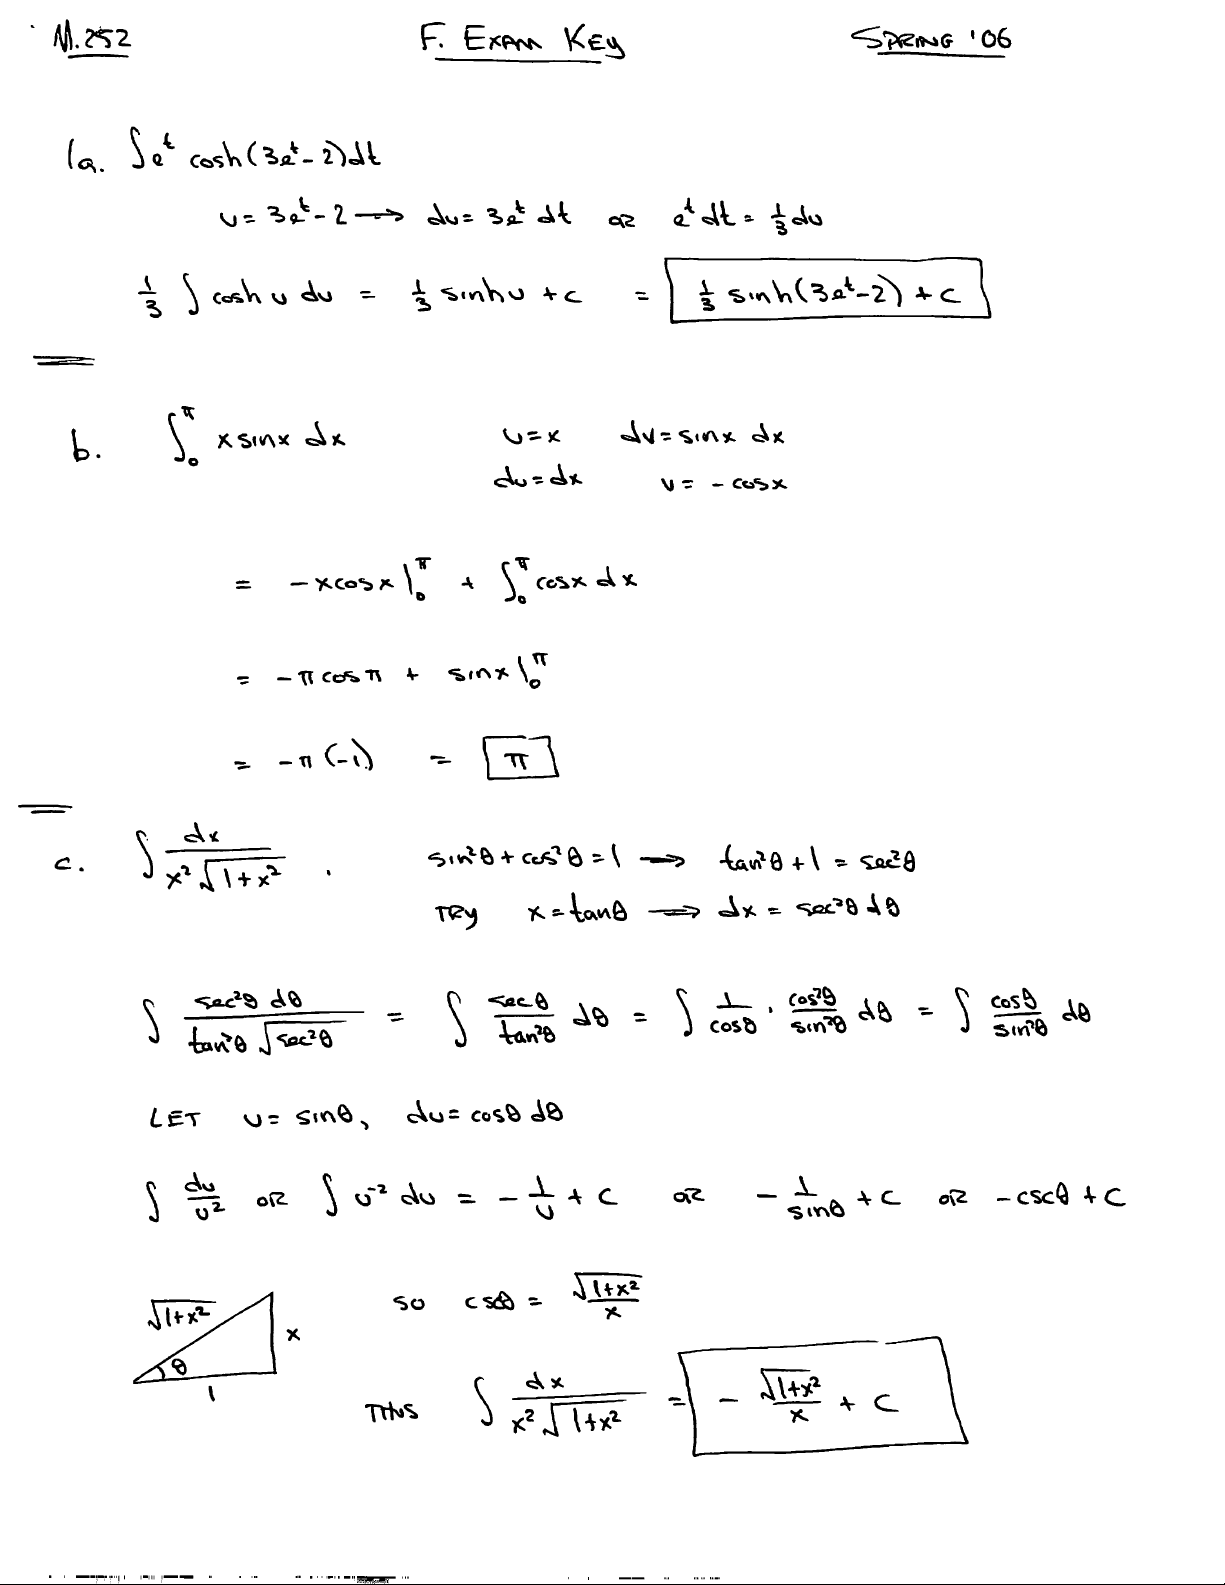 M.252 F. Exam Key Spring '06
1a. ∫e^t cosh(3e^t-2)dt
u=3e^t-2 → du=3e^t dt or e^t dt = 1/3 du
1/3 ∫ cosh u du = 1/3 sinh u + c = 1/3 sinh(3e^t-2) + c
b. ∫_0^π x sinx dx u=x dv=sinx dx
du=dx v= -cosx
= -xcosx |_0^π + ∫_0^π cosx dx
= -π cos π + sinx |_0^π
= -π (-1) = π
c. ∫ dx/(x²√(1+x²)) . sin²θ+cos²θ=1 → tan²θ+1 = sec²θ
Try x=tanθ → dx = sec²θ dθ
∫ sec²θ dθ/(tan²θ √(sec²θ)) = ∫ secθ/tan²θ dθ = ∫ 1/cosθ · cos²θ/sin²θ dθ = ∫ cosθ/sin²θ dθ
LET u= sinθ, du=cosθ dθ
∫ du/u² or ∫ u^-2 du = - 1/u + C or - 1/sinθ + C or -cscθ + C
√(1+x²) x θ 1 so cscθ = √(1+x²)/x
Thus ∫ dx/(x²√(1+x²)) = - √(1+x²)/x + C